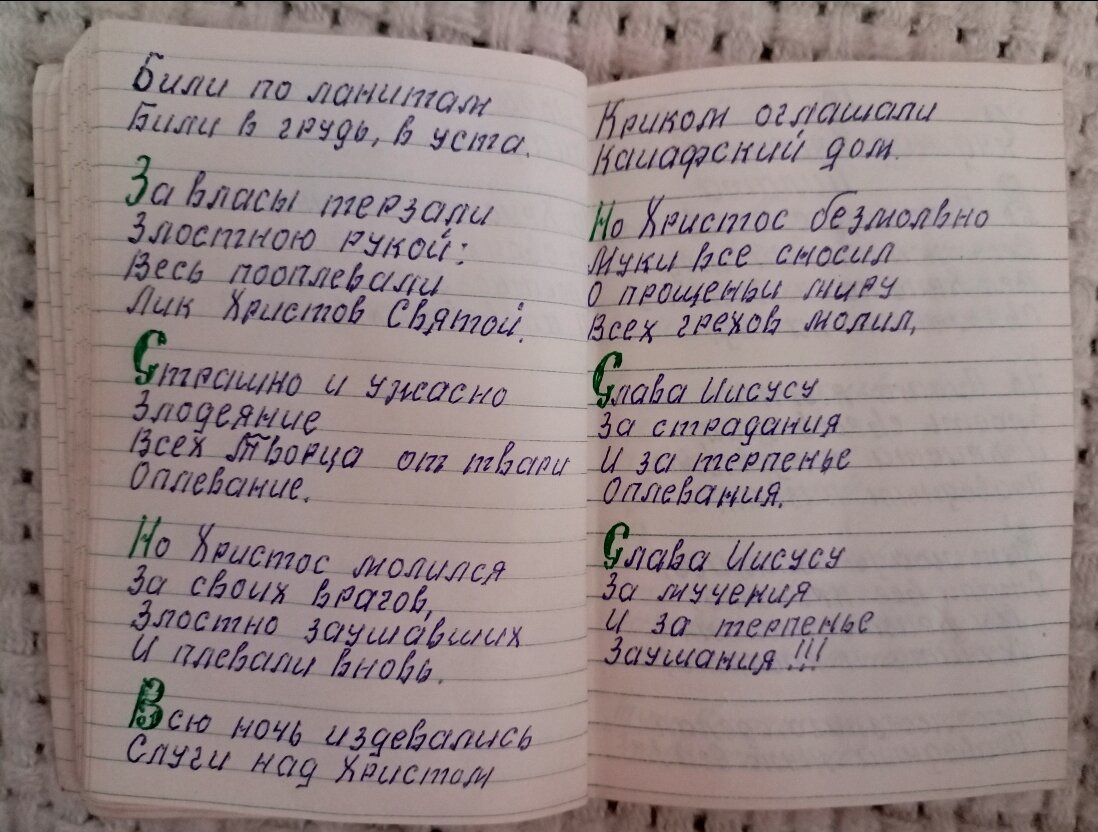 Били по ланитам
Били в грудь, в уста.
За власы терзали
Злостною рукой:
Весь пооплевали
Лик Христов Святой.
Страшно и ужасно
Злодеяние
Всех Творца от твари
Оплевание.
Но Христос молился
За своих врагов,
Злостно заушавших
И плевали вновь.
Всю ночь издевались
Слуги над Христом
Криком оглашали
Каиафский дом.
Но Христос безмолвно
Муки все сносил
О прощеньи миру
Всех грехов молил,
Слава Иисусу
За страдания
И за терпенье
Оплевания.
Слава Иисусу
За мучения
И за терпенье
Заушания!!!